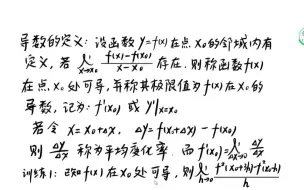 导数的定义：设函数 y=f(x) 在点 x₀ 的邻域内有
定义，若 lim x→x₀ (f(x)-f(x₀))/(x-x₀) 存在，则称函数 f(x)
在点 x₀ 处可导，并称其极限值为 f(x) 在 x₀ 的
导数，记为：f'(x₀) 或 y'|x=x₀
若令 x=x₀+Δx，Δy=f(x₀+Δx)-f(x₀)
则 Δy/Δx 称为平均变化率，而 f'(x₀)=lim Δx→0 Δy/Δx
训练1：已知 f(x) 在 x₀ 处可导，则 lim h→0 (f(x₀+3h)-f(x₀-h))/h